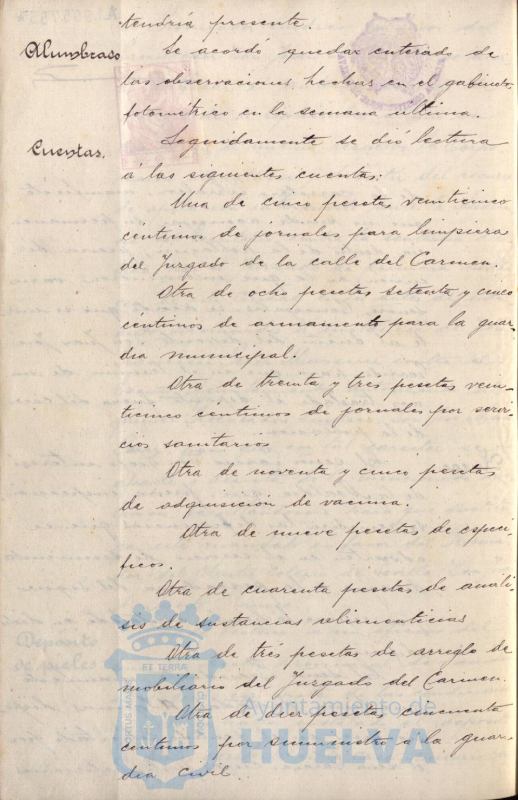 tendría presente.
Alumbrado
Se acordó quedar enterado de
las observaciones hechas en el gabinete
fotométrico en la semana ultima.
Cuentas.
Seguidamente se dió lectura
á las siguientes cuentas:
Una de cinco pesetas veinticinco
céntimos de jornales para limpieza
del Juzgado de la calle del Carmen.
Otra de ocho pesetas setenta y cinco
céntimos de armamento para la guar-
dia municipal.
Otra de treinta y tres pesetas vein-
ticinco céntimos de jornales por servi-
cios sanitarios
Otra de noventa y cinco pesetas
de adquisición de vacuna.
Otra de nueve pesetas de especí-
ficos.
Otra de cuarenta pesetas de análi-
sis de sustancias alimenticias
Otra de tres pesetas de arreglo de
mobiliario del Juzgado del Carmen.
Otra de diez pesetas cincuenta
céntimos por suministro a la guar-
dia civil.
ET TERRA
PORTUS MARIS
Ayuntamiento de
HUELVA